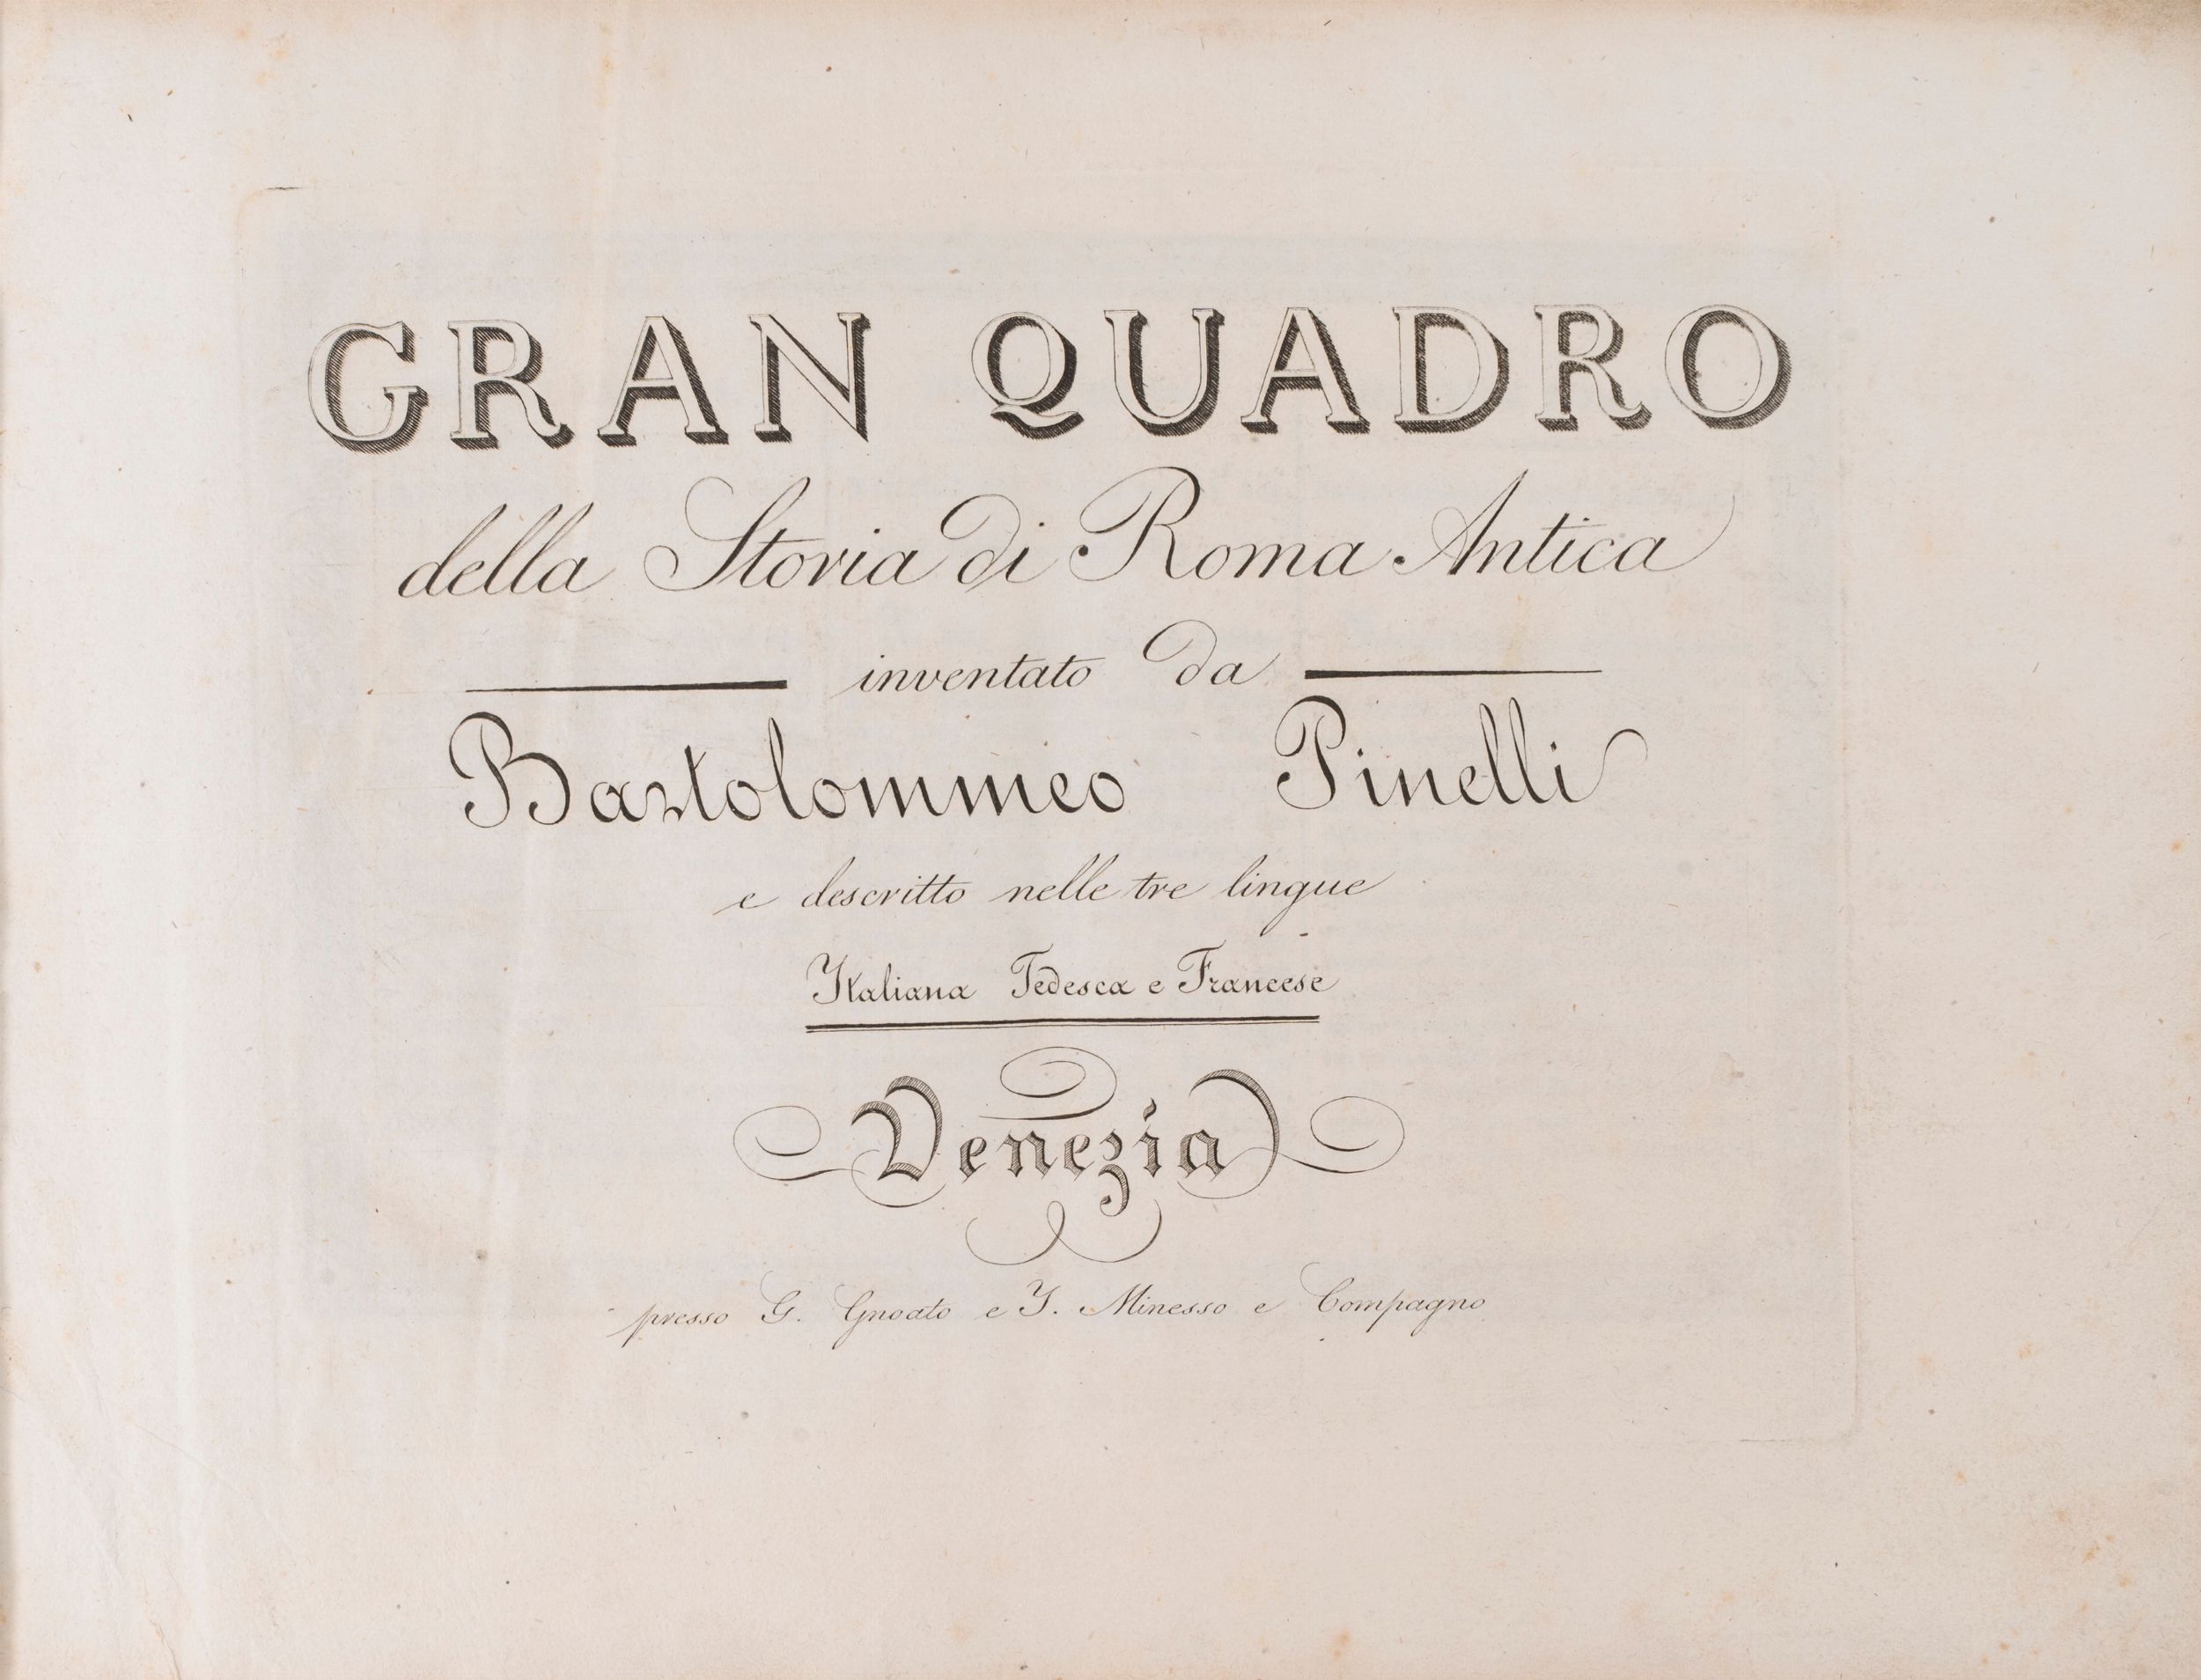 GRAN QUADRO
della Storia di Roma Antica
inventato da
Bartolommeo Pinelli
e descritto nelle tre lingue
Italiana Tedesca e Francese
Venezia
presso G. Gnoato e I. Minesso e Compagno